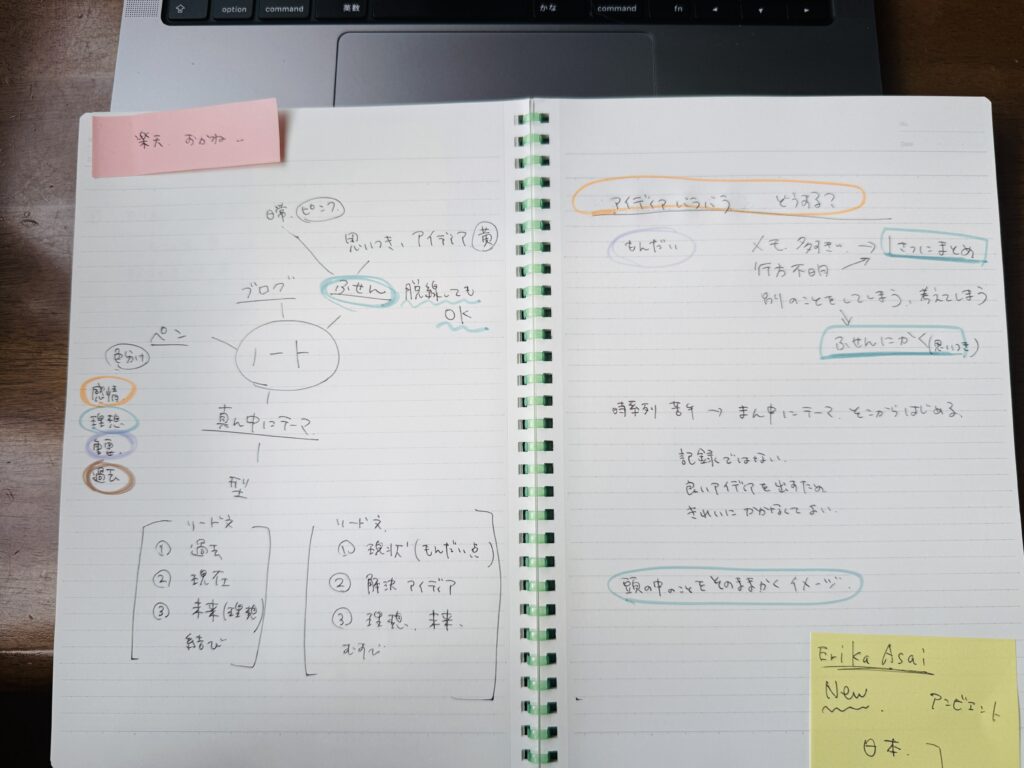 option
command
英数
かな
command
fn
楽天 おかね
日常 ピンク
思いつき、アイディア 黄
ブログ
ふせん 脱線しても
OK
ペン
色分け
ノート
感情
理想
重要
過去
真ん中にテーマ
型
リード文
① 過去
② 現在
③ 未来(理想)
結び
リード文
① 現状(もんだい点)
② 解決アイディア
③ 理想、未来、
むすび
アイディアバラバラ どうする?
もんだい
メモ、多すぎ → 1さつにまとめ
行方不明
別のことをしてしまう、考えてしまう
ふせんにかく(思いつき)
時系列 苦手 → まん中にテーマ、そこからはじめる、
記録ではない
良いアイディアを出すため
きれいにかかなくてよい
頭の中のことをそのままかくイメージ
Erika Asai
New
アンビエント
日本